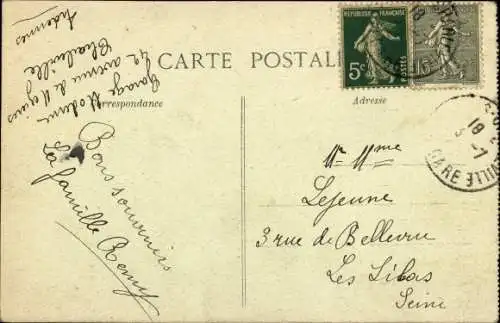 Garage Moderne
42 avenue de Mézières
Charleville
Ardennes
CARTE POSTALE
Correspondance
Adresse
Bons souvenirs
La famille Remy
REPUBLIQUE FRANÇAISE
5c
POSTES
Mr Mme
Lejeune
3 rue de Bellevue
Les Lilas
Seine
18
GARE